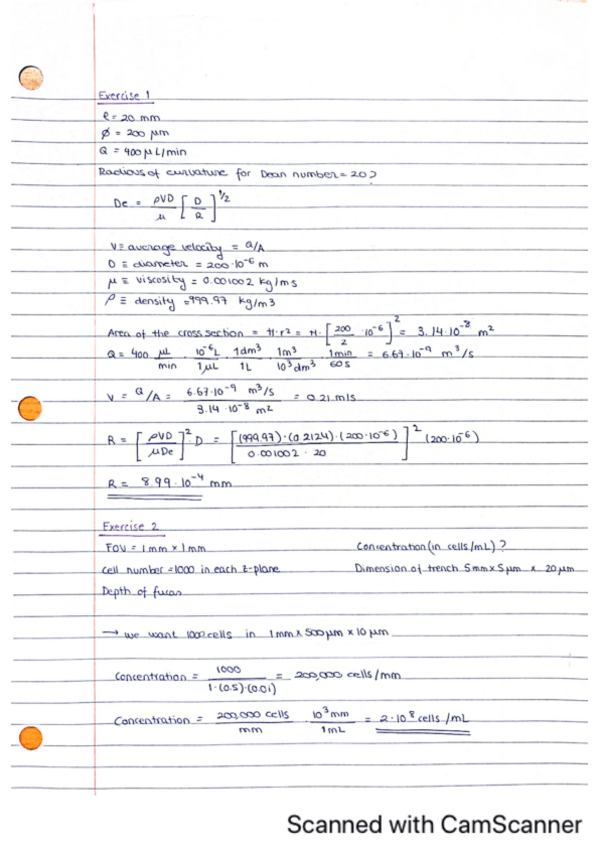 Exercise 1
l = 20 mm
Ø = 200 μm
Q = 400 μL/min
Radious of curvature for Dean number = 20?
De = ρVD/μ [D/R]^1/2
V ≡ average velocity = Q/A
D ≡ diameter = 200·10^-6 m
μ ≡ viscosity = 0.001002 kg/ms
ρ ≡ density = 999.97 kg/m3
Area of the cross section = π·r² = π·[200/2 ·10^-6]² = 3.14·10^-8 m²
Q = 400 μL/min · 10^-6L/1μL · 1dm³/1L · 1m³/10³dm³ · 1min/60s = 6.67·10^-9 m³/s
V = Q/A = 6.67·10^-9 m³/s / 3.14·10^-8 m² = 0.21 m/s
R = [ρVD/μDe]² D = [(999.97)·(0.2124)·(200·10^-6)/0.001002·20]² (200·10^-6)
R = 8.99·10^-4 mm
Exercise 2
FOV = 1mm x 1mm Concentration (in cells/mL)?
Cell number = 1000 in each z-plane Dimension of trench 5mm x 5μm x 20μm
Depth of fucus
→ we want 1000 cells in 1mm x 500μm x 10μm
Concentration = 1000/1·(0.5)·(0.01) = 200,000 cells/mm
Concentration = 200,000 cells/mm · 10³mm/1mL = 2·10^8 cells/mL
Scanned with CamScanner